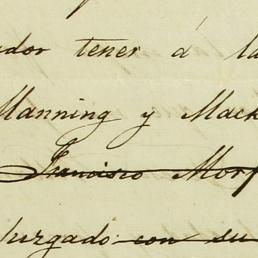 ador tener á la
Manning y Mack
Francisco Mor
Juzgado con su